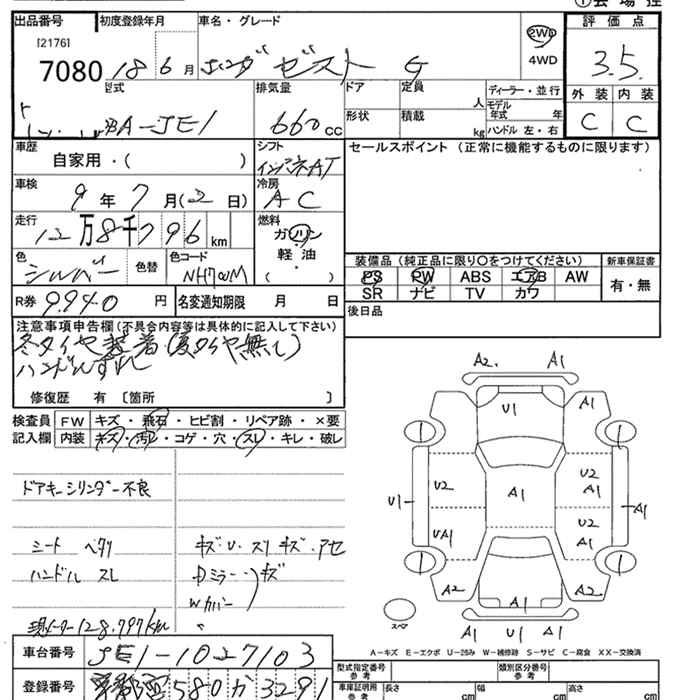 出品番号
[2176]
7080
初度登録年月
18 6月
車名・グレード
ホンダ ゼスト G
2WD
4WD
①会場控
評価点
3.5
外装 内装
C C
型式
BA-JE1
排気量
660cc
ドア
定員
人
形状
積載
kg
ディーラー・並行
モデル年式 年
ハンドル 左・右
車歴
自家用・( )
シフト
インパネAT
車検
9年7月(2日)
冷房
AC
セールスポイント (正常に機能するものに限ります)
走行
12万8千796km
燃料
ガソリン
軽油
・
( )
色
シルバー
色替
色コード
NH700M
装備品(純正品に限り○をつけてください)
PS PW ABS エアB AW
SR ナビ TV カワ
新車保証書
有・無
R券 9940円
名変通知期限 月 日
後日品
注意事項申告欄(不具合内容等は具体的に記入して下さい)
冬タイヤ装着(夏タイヤ無し)
ハンドルずれ
修復歴 有 〔箇所 〕
検査員記入欄
FW キズ・飛石・ヒビ割・リペア跡・×要
内装 キズ・汚レ・コゲ・穴・スレ・キレ・破レ
ドアキーシリンダー不良
シート ヘタリ
ハンドル スレ
キズ・U・スリキズ・アセ
Dミラー キズ
Wカバー
現メーター128,797km
A2. A1
U1 A1
1 1
U2 U2
A1
U1 A1 A1
U2
UA1 A1
1 1
A2 A2
A1
スペア
A1 U1 A1
A-キズ E-エクボ U-凹み W-補修跡 S-サビ C-腐食 XX-交換済
車台番号 JE1-1027103
登録番号 580か3291
型式指定番号 参考
類別区分番号 参考
車庫証明用 参考
長さ cm 幅 cm 高さ cm